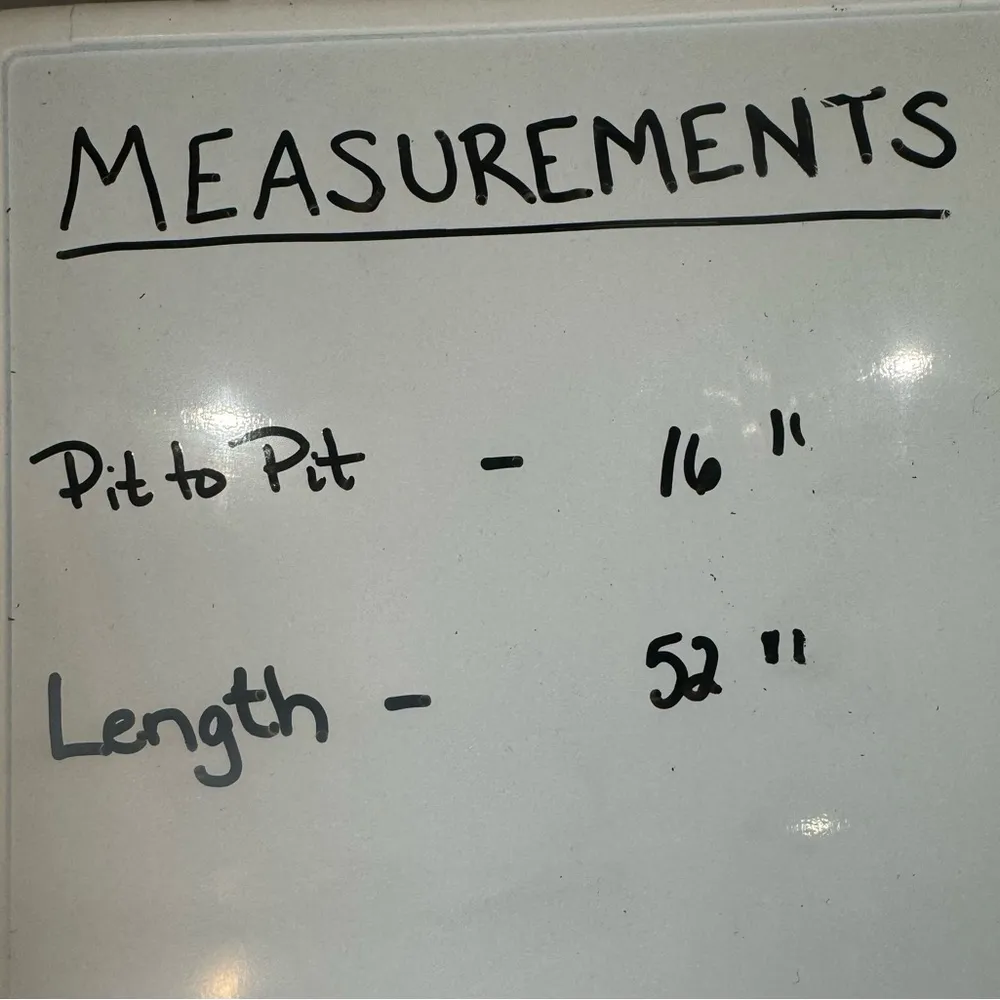 MEASUREMENTS
Pit to Pit - 16"
Length - 52"